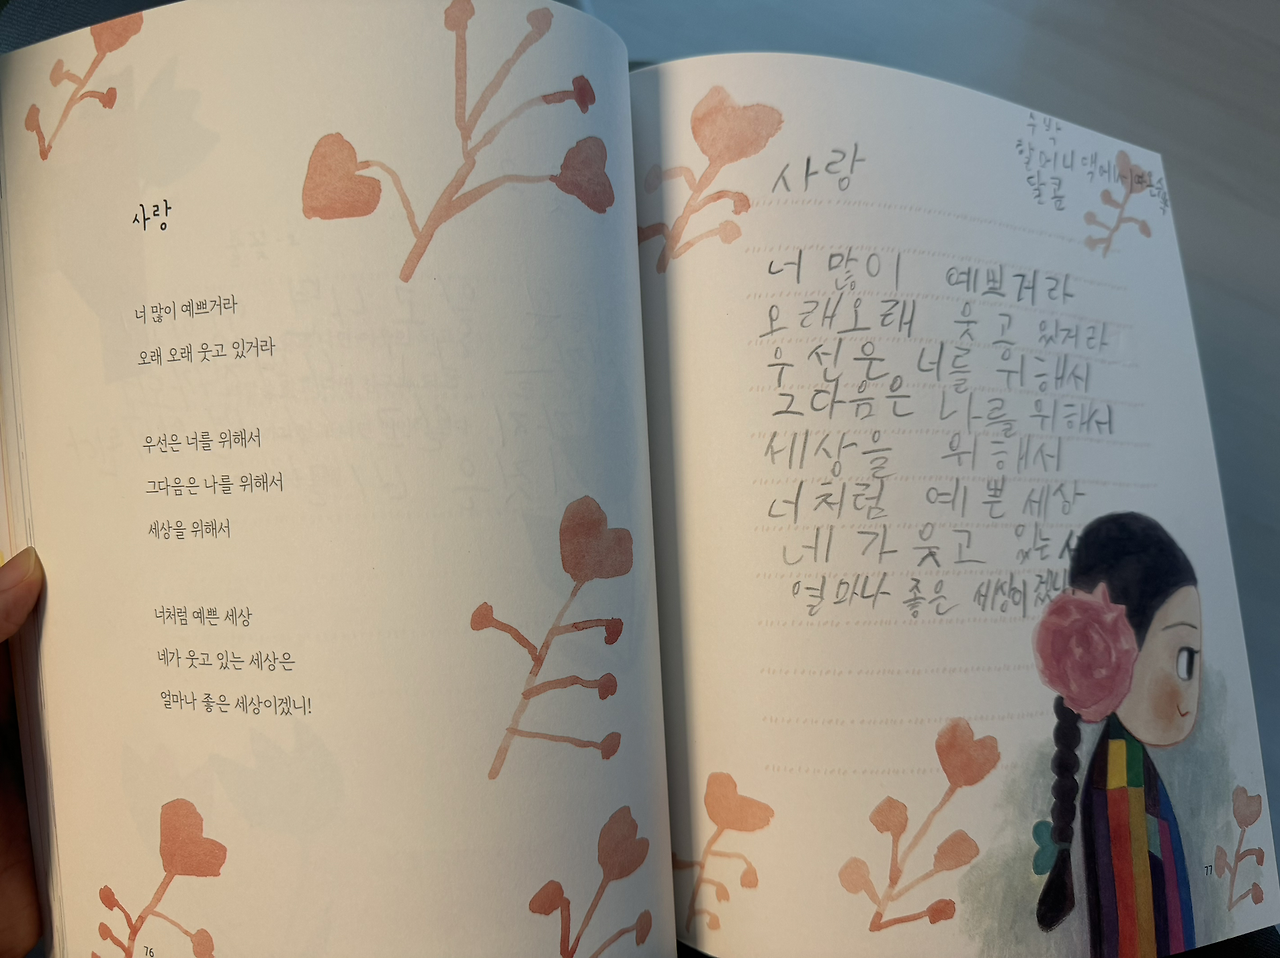 사랑
너 많이 예쁘거라
오래 오래 웃고 있거라
우선은 너를 위해서
그다음은 나를 위해서
세상을 위해서
너처럼 예쁜 세상
네가 웃고 있는 세상은
얼마나 좋은 세상이겠니!
76
수박
할머니댁에서
달콤
사랑
너 많이 예쁘거라
오래오래 웃고 있거라
우선은 너를 위해서
그다음은 나를 위해서
세상을 위해서
너처럼 예쁜 세상
네가 웃고 있는
얼마나 좋은 세상이겠니
77